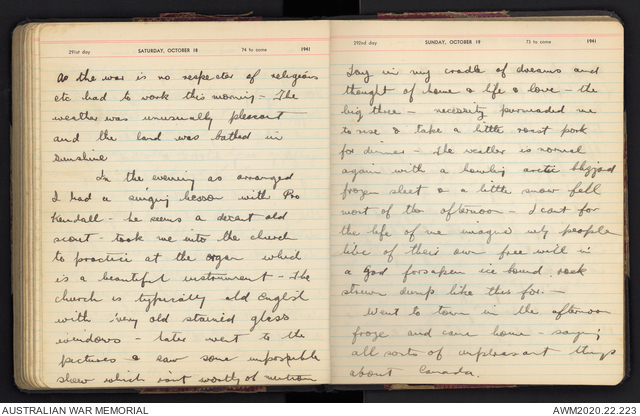 291st day SATURDAY, OCTOBER 18 74 to come 1941
As the war is no respector of religions
etc had to work this morning - The
weather was unusually pleasant
and the land was bathed in
sunshine
In the evening as arranged
I had a singing lesson with Pro
Kendall - he seems a decent old
scout - took me into the church
to practice at the organ which
is a beautiful instrument - The
church is typically old English
with very old stained glass
windows - later went to the
pictures & saw some impossible
show which isn't worthy of mention
292nd day SUNDAY, OCTOBER 19 73 to come 1941
Lay in my cradle of dreams and
thought of home & life & love - the
big three - necessity persuaded me
to rise & take a little roast pork
for dinner - The weather is normal
again with a howling arctic blizzard
frozen sleet & a little snow fell
most of the afternoon - I cant for
the life of me why people
live of their own free will in
a God forsaken ice bound rock
strewn dump like this for. -
Went to town in the afternoon
froze and came home - saying
all sorts of unpleasant things
about Canada.
AUSTRALIAN WAR MEMORIAL
AWM2020.22.223